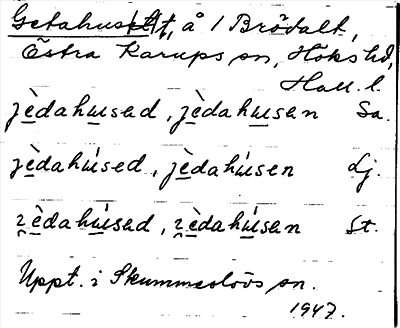 Getahuset, å 1 Brödalt,
Östra Karups sn, Höks hd,
Hall. l.
jèdahusad, jèdahusen Sa.
jèdahúsed, jèdahúsen Lj.
ɀèdahúsad, ɀèdahúsen St.
Uppt. i Skummeslövs sn.
1947.